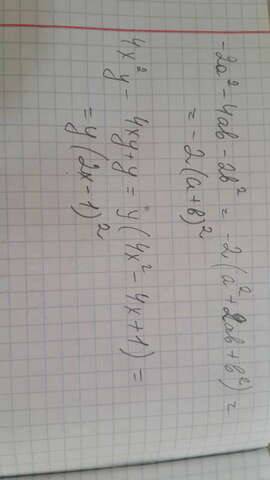 -2a² - 4ab - 2b² = -2(a² + 2ab + b²) =
= -2(a+b)²
4x²y - 4xy + y = y(4x² - 4x + 1) =
= y(2x - 1)²